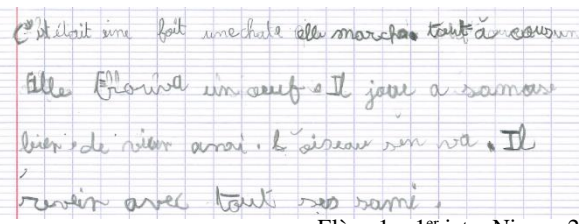 C'était une foit une chate elle marcha tout à cousun
Elle trouva un oeuf. Il joue a samase
bien de vien amoi. L'oiseau sen va. Il
revein avec tout ses sami.
Elève 1 1er jet Niveau 2